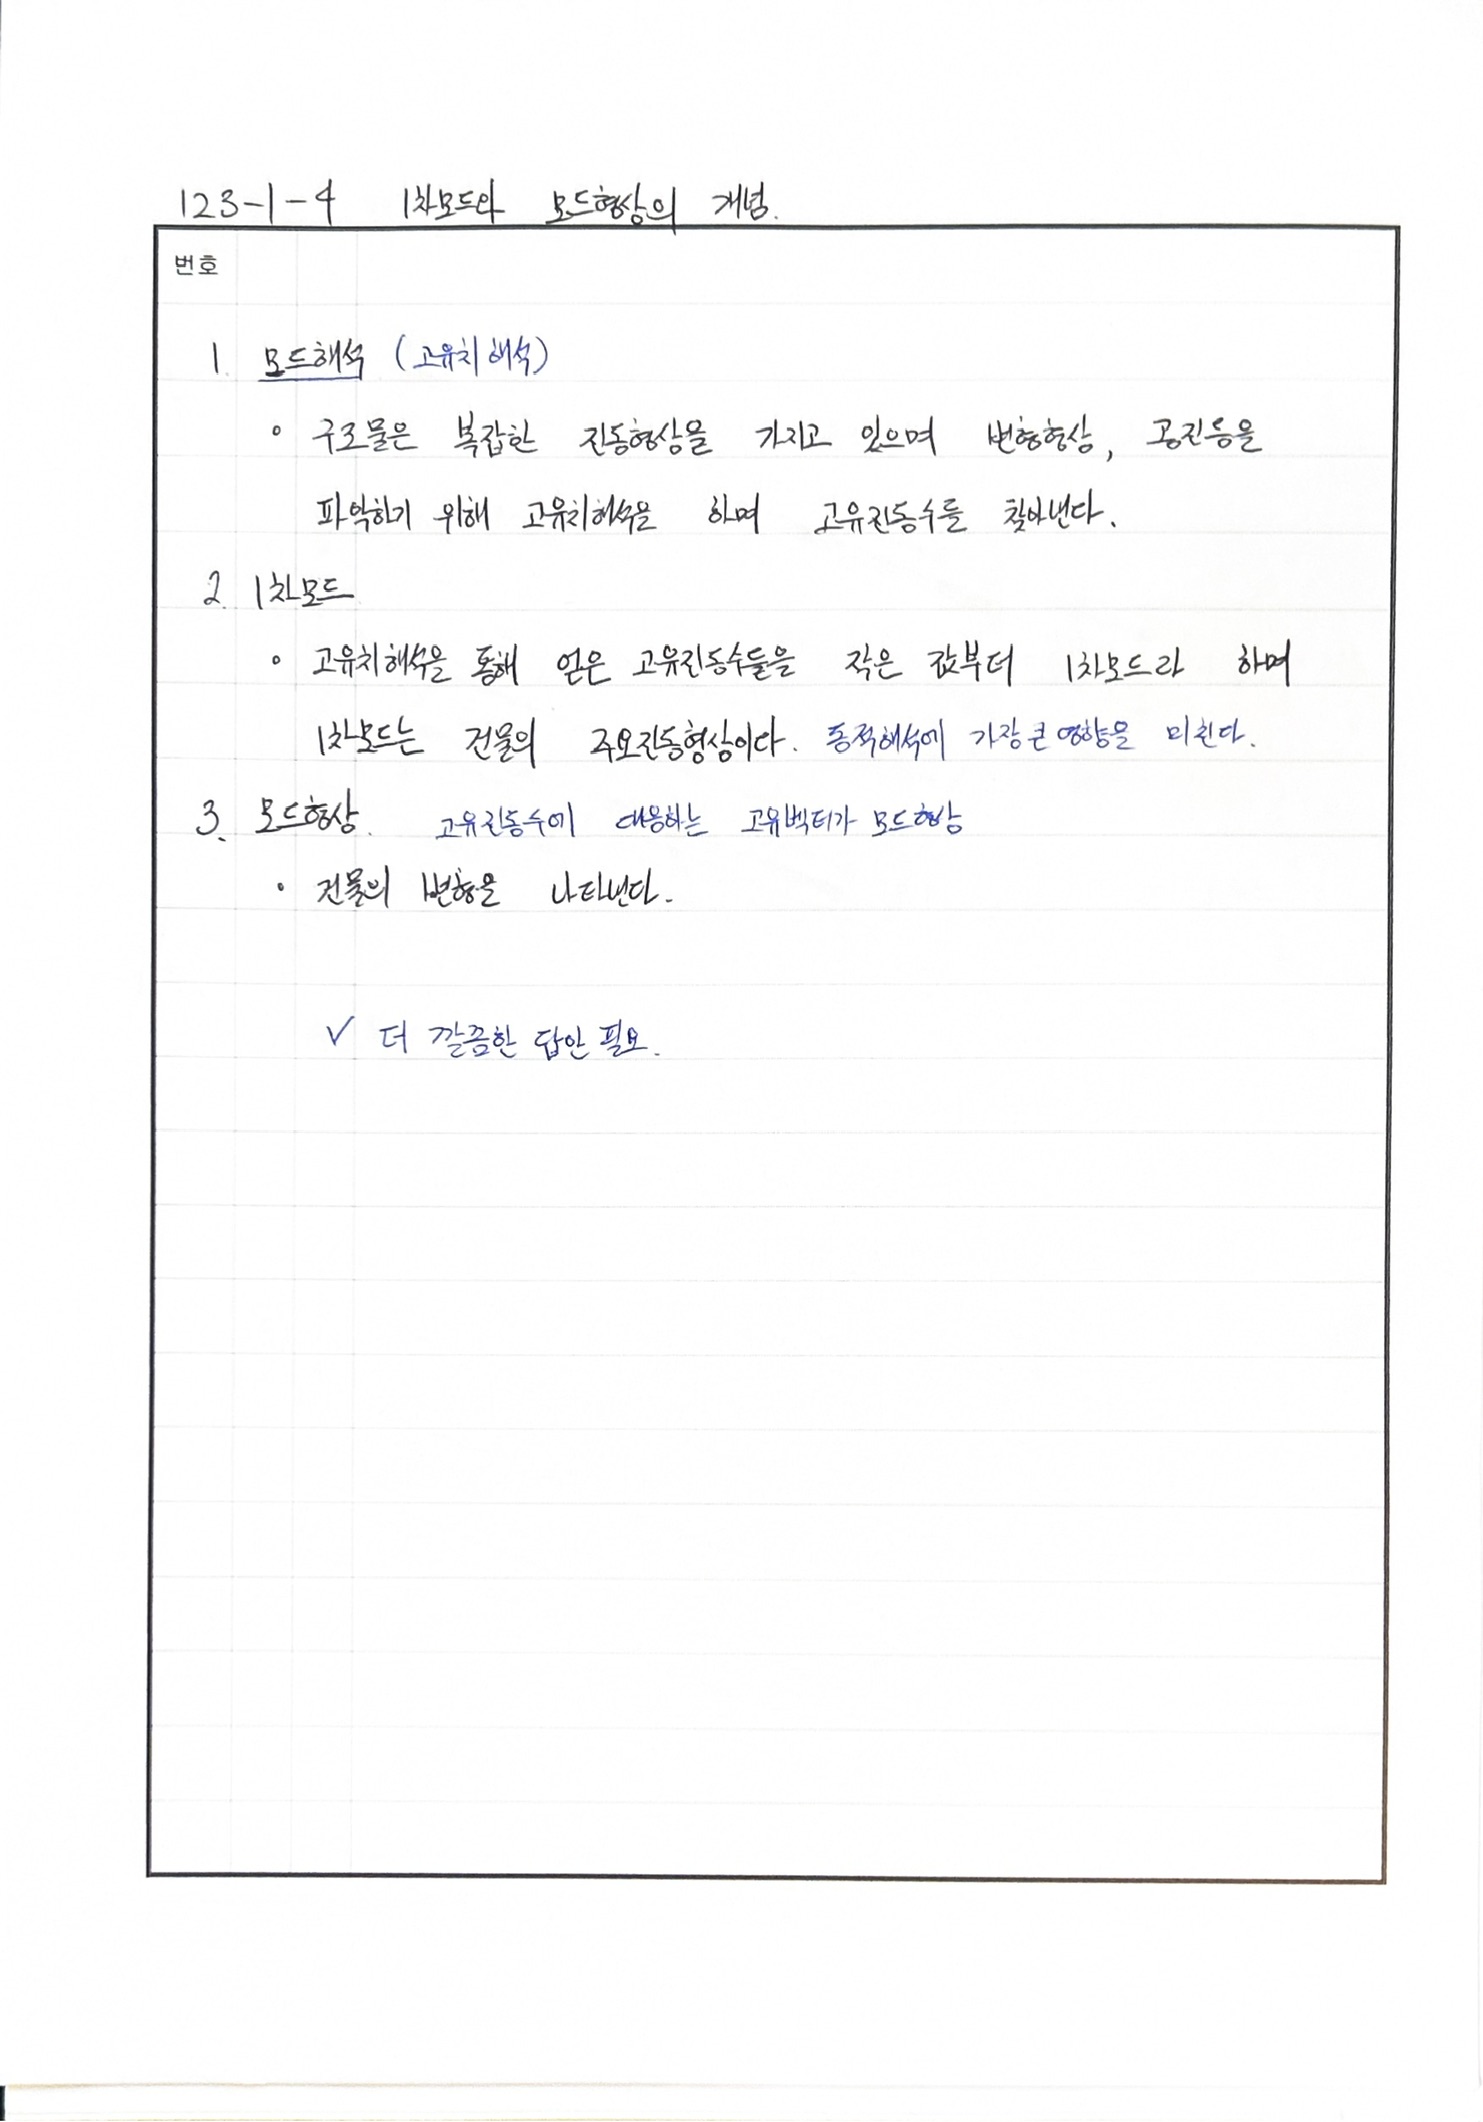 123-1-4 1차모드와 모드형상의 개념.
번호
1. 모드해석 (고유치해석)
∘ 구조물은 복잡한 진동형상을 가지고 있으며 변형형상, 공진등을
파악하기 위해 고유치해석을 하며 고유진동수를 찾아낸다.
2. 1차모드
∘ 고유치해석을 통해 얻은 고유진동수들을 작은 값부터 1차모드라 하며
1차모드는 건물의 주요진동형상이다. 동적해석에 가장 큰 영향을 미친다.
3. 모드형상. 고유진동수에 대응하는 고유벡터가 모드형상
• 건물의 변형을 나타낸다.
✓ 더 깔끔한 답안 필요.